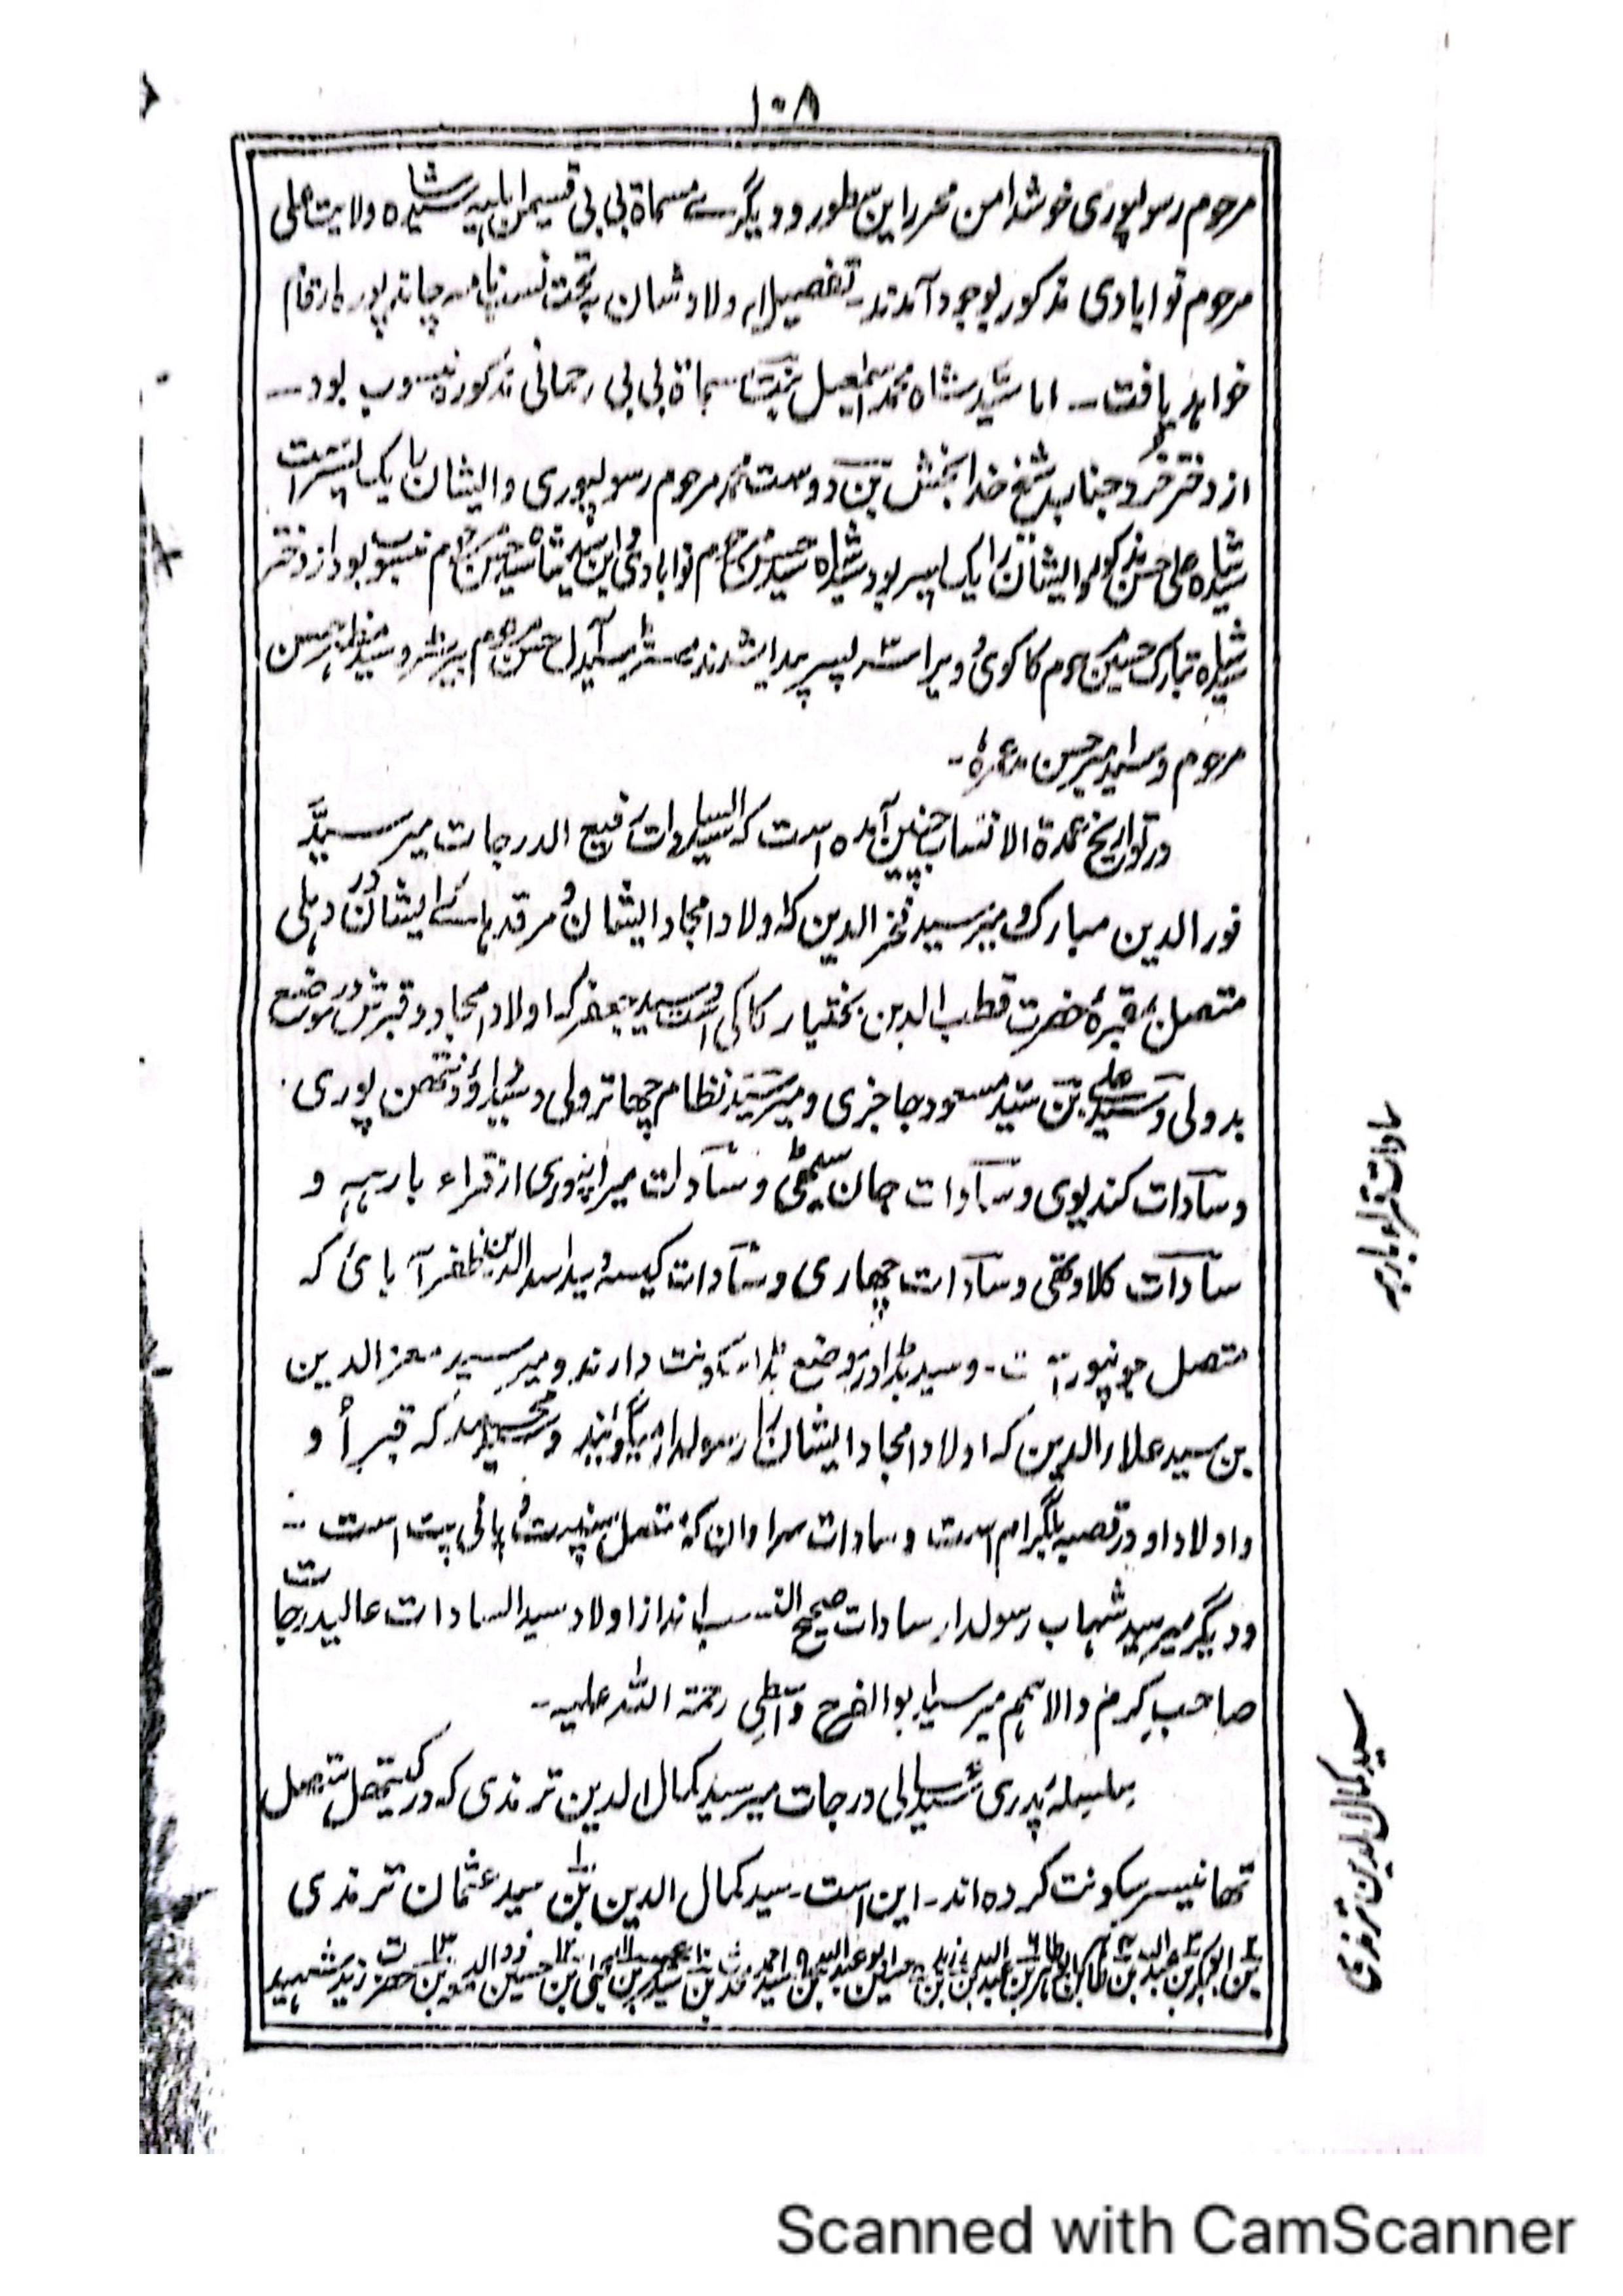 ١٠٨
مرحوم رسولپوری خوشدامن محرر این سطور و دیگرے مسماة بی بی قسیمن اہلیہ سید شاہ ولایت علی
مرحوم نوابادی مذکور بوجود آمدند۔ تفصیل اولاد شان بہ تحت نسب نامہ چاند پور ارقام
خواہد یافت۔ اما سید شاہ محمد اسمٰعیل بنیت مسماة بی بی رحمانی مذکورہ منسوب بود۔
از دختر خرد جناب شیخ خدا بخش بن دوست محمد مرحوم رسولپوری و ایشان را یک پسر است
سید شاہ علی حسن مذکور و ایشان را یک پسر بود سید شاہ حسین مرحوم نوابادی و این سید شاہ حسین مرحوم منسوب بود از دختر
سید شاہ تبارک حسین مرحوم کاکوی ویرا سہ پسر پیدا شدند مسٹر سید آل حسن مرحوم بیرسٹر و سید مظاہر حسن
مرحوم و سید امیر حسن عمرہٗ۔
در تواریخ عمدة الانساب چنین آمدہ است کہ سید السادات رفیع الدرجات میر سید
نور الدین مبارک و میر سید فخر الدین کہ اولاد امجاد ایشان و مرقد ہائے ایشان در دہلی
متصل مقبرۂ حضرت قطب الدین بختیار کاکی است و سید جعفر کہ اولاد امجاد و قبرش در موضع
بدولی و سید علی بن سید مسعود جاجزی و میر سید نظام چھاترولی و سید داؤد نتھن پوری
و سادات کندیوی و سادات جان سیٹھی و سادات میرانپوری از قراء بارہہ و
سادات کلاوتھی و سادات چھاری و سادات کیسہ و سید اسد الدین ظفر آبادی کہ
متصل جونپور است۔ و سید بڈا در موضع بڈا سکونت دارند و میر سید معز الدین
بن سید علاء الدین کہ اولاد امجاد ایشان را رسولدار میگویند و سید محمد کہ قبر او
و اولاد او در قصبہ بلگرام است و سادات سراوان کہ متصل سنپت و پانی پت است۔
و دیگر میر سید شہاب رسولدار سادات صحیح النسب اند از اولاد سید السادات عالیدرجات
صاحب کرم والا ہمم میر سید ابوالفرح واسطی رحمة اللہ علیہ۔
سلسلہ پدری سید عالی درجات میر سید کمال الدین ترمذی کہ در کیتھل متصل
تھانیسر سکونت کردہ اند۔ این است۔ سید کمال الدین بن سید عثمان ترمذی
بن ابوبکر بن عبد اللہ بن طاہر بن عبد اللہ بن زید بن حسین بن ابو عبد اللہ بن سید احمد محدث بن سید عمر بن یحیی بن حسین ذو الدمعہ بن حضرت زید شہید
سادات قراء بارہہ
سید کمال الدین ترمذی
Scanned with CamScanner